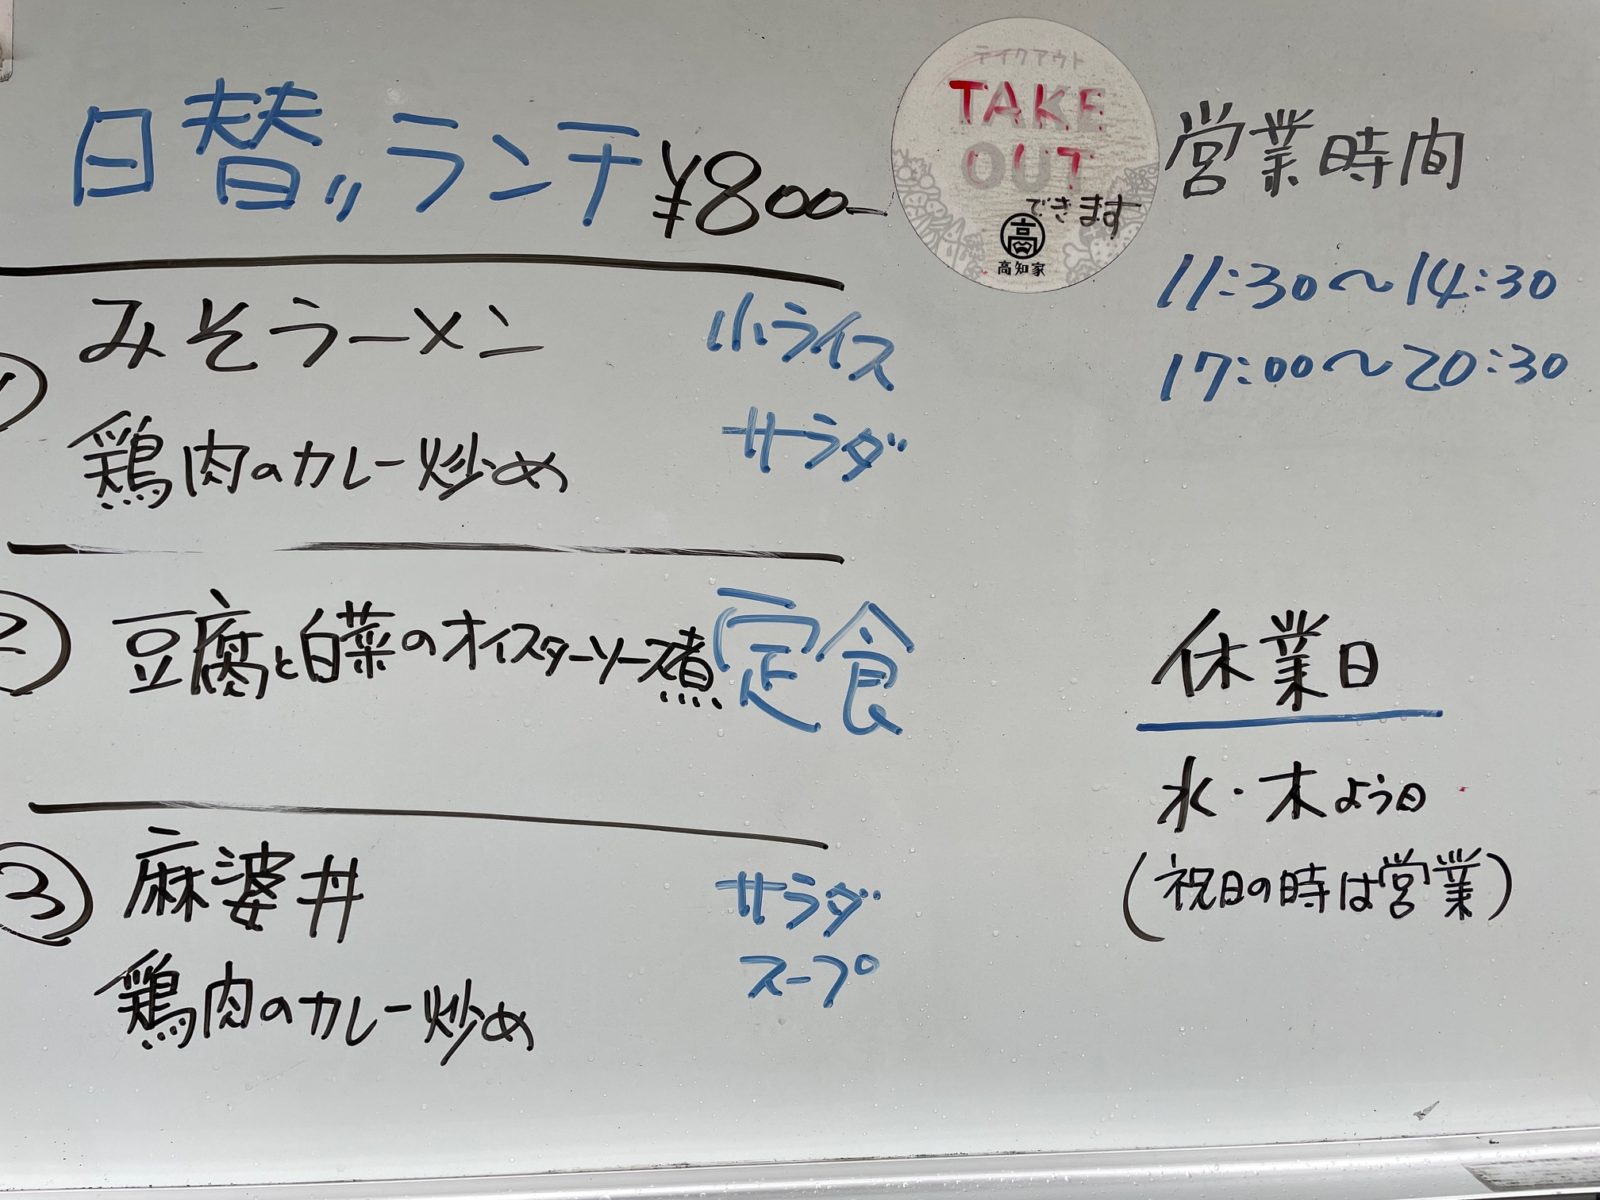 日替りランチ ¥800-
① みそラーメン 小ライス
鶏肉のカレー炒め サラダ
② 豆腐と白菜のオイスターソース煮 定食
③ 麻婆丼 サラダ
鶏肉のカレー炒め スープ
テイクアウト
TAKE
OUT
できます
高
高知家
営業時間
11:30〜14:30
17:00〜20:30
休業日
水・木よう日
(祝日の時は営業)